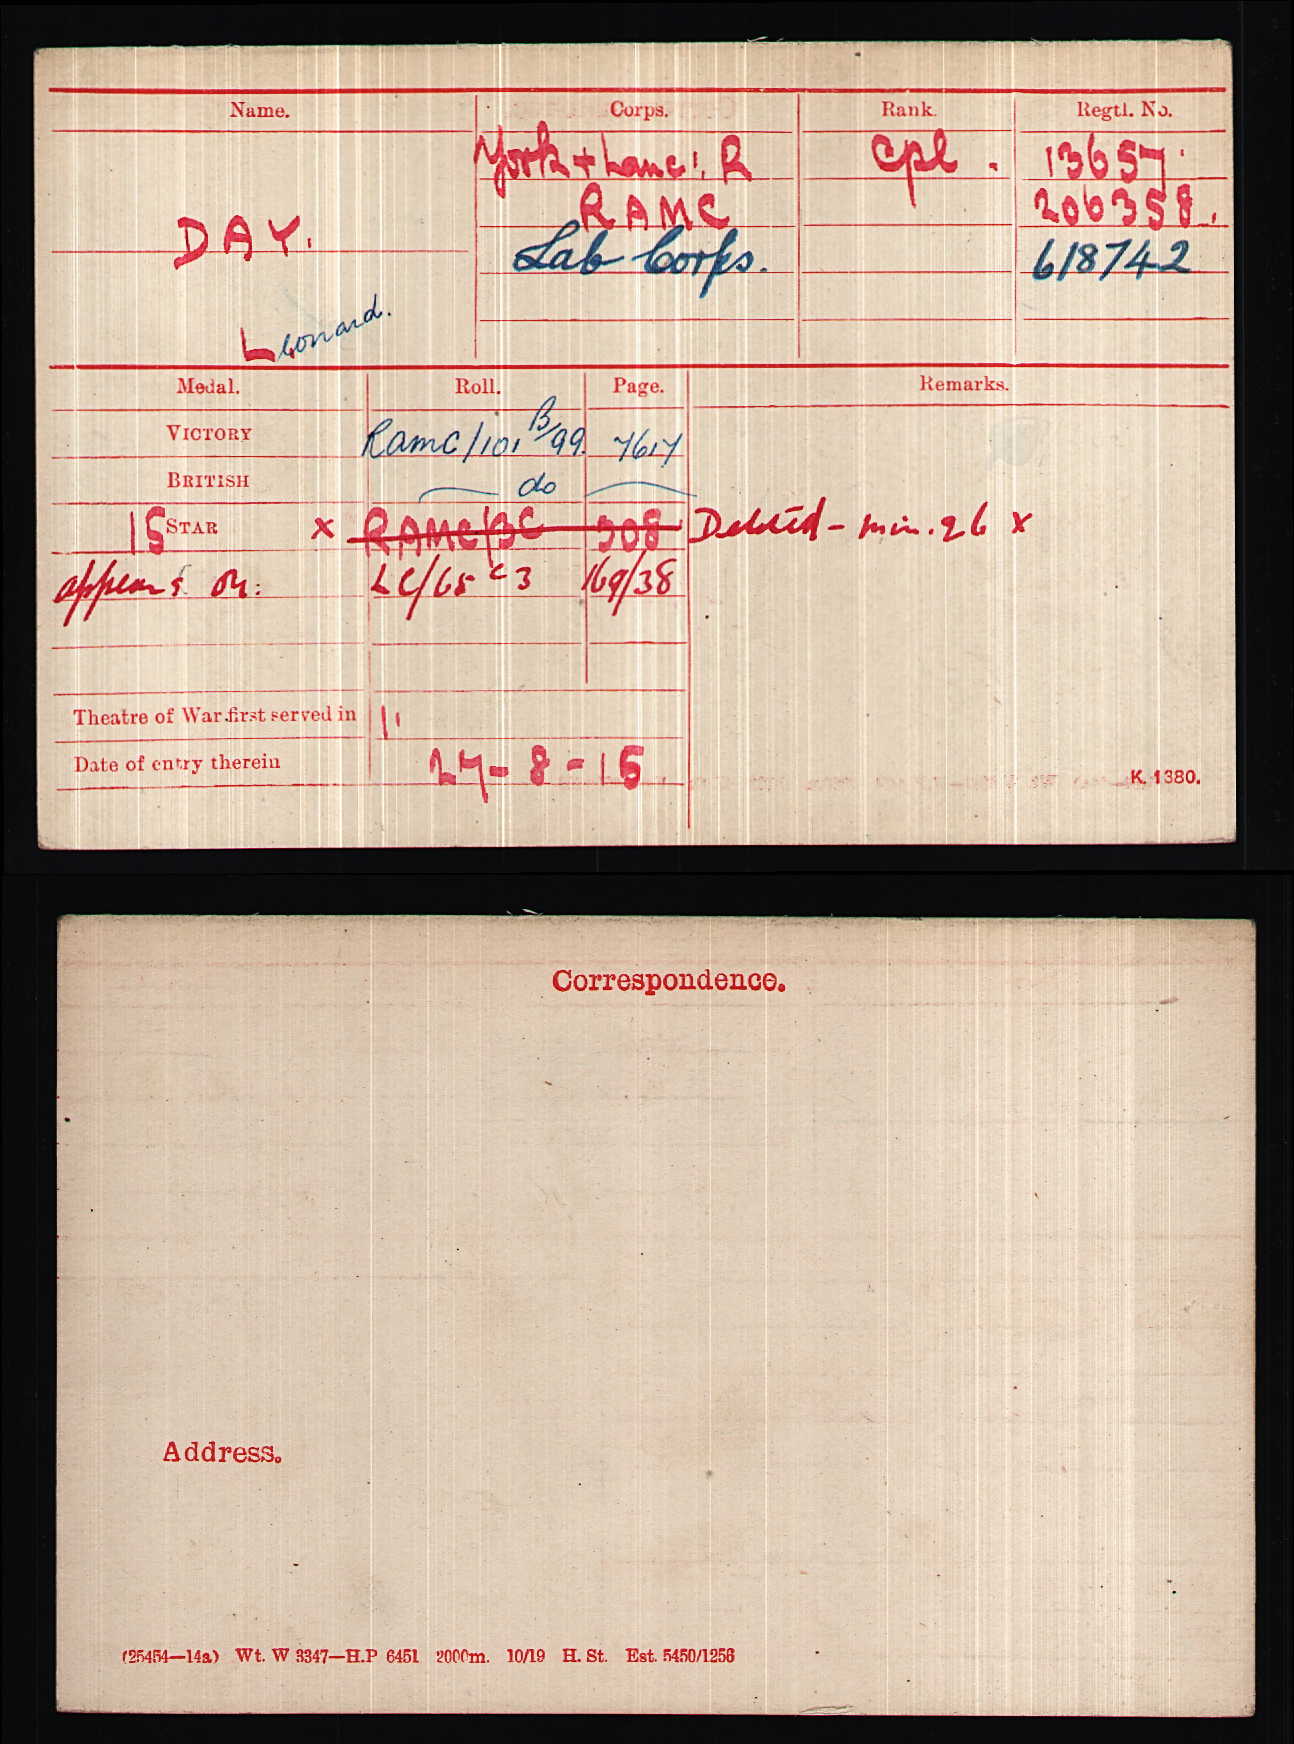 Name. Corps. Rank. Regtl. No.
York + Lanc'. R Cpl. 13657.
RAMC 206358.
DAY. Lab Corps. 618742
Leonard.
Medal. Roll. Page. Remarks.
VICTORY Ramc/101 B/99. 7617
BRITISH do
15 STAR x RAMC/3C 308 Deleted - min. 26 x
appears on: LC/65 C3 169/38
Theatre of War first served in
Date of entry therein 27-8-15
K. 1380.
Correspondence.
Address.
(25454—14a) Wt. W 3347—H.P 6451 2000m. 10/19 H. St. Est. 5450/1256